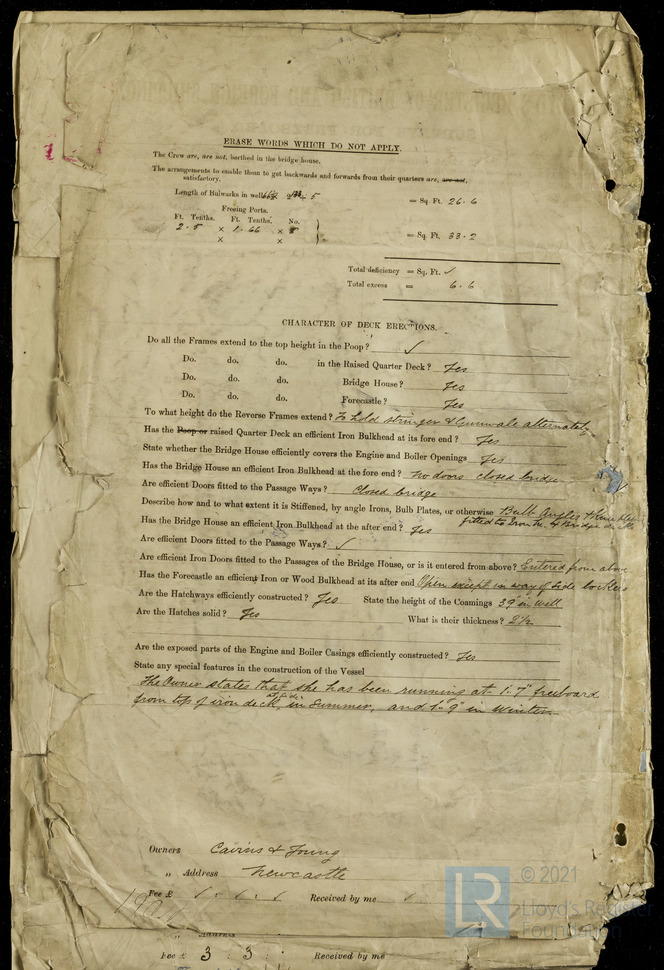 ERASE WORDS WHICH DO NOT APPLY.
The Crew are, are not, berthed in the bridge house.
The arrangements to enable them to get backwards and forwards from their quarters are, are not,
satisfactory.
Length of Bulwarks in well 5 = Sq. Ft. 26.6
Freeing Ports.
Ft. Tenths. Ft. Tenths. No.
2.5 × 1.66 × 8 = Sq. Ft. 33.2
× ×
Total deficiency = Sq. Ft. ✓
Total excess = 6.6
CHARACTER OF DECK ERECTIONS.
Do all the Frames extend to the top height in the Poop? ✓
Do. do. do. in the Raised Quarter Deck? Yes
Do. do. do. Bridge House? Yes
Do. do. do. Forecastle? Yes
To what height do the Reverse Frames extend? To hold stringer & Gunwale alternately
Has the Poop or raised Quarter Deck an efficient Iron Bulkhead at its fore end? Yes
State whether the Bridge House efficiently covers the Engine and Boiler Openings Yes
Has the Bridge House an efficient Iron Bulkhead at the fore end? No doors closed bridge
Are efficient Doors fitted to the Passage Ways? Closed bridge
Describe how and to what extent it is Stiffened, by angle Irons, Bulb Plates, or otherwise Bulb Angles &
fitted to Iron & Bridge
Has the Bridge House an efficient Iron Bulkhead at the after end? Yes
Are efficient Doors fitted to the Passage Ways? ✓
Are efficient Iron Doors fitted to the Passages of the Bridge House, or is it entered from above? Entered from above
Has the Forecastle an efficient Iron or Wood Bulkhead at its after end Open except in way of side lockers
Are the Hatchways efficiently constructed? Yes State the height of the Coamings 39" in well
Are the Hatches solid? Yes What is their thickness? 2½
Are the exposed parts of the Engine and Boiler Casings efficiently constructed? Yes
State any special features in the construction of the Vessel
The Owner states that she has been running at 1'.7" freeboard
from top of iron deck at side in Summer, and 1'.9" in Winter
Owners Cairns & Young
„ Address Newcastle
Fee £ Received by me
Address
Fee £ 3 : 3 : Received by me
LR
© 2021
Lloyd's Register
Foundation